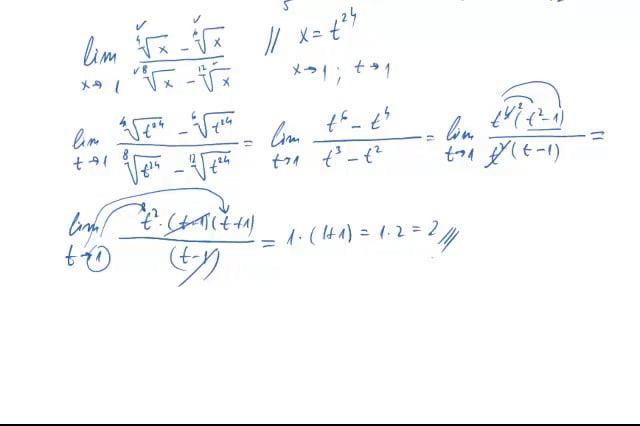 5
lim x→1 (⁴√x − ⁶√x)/(⁸√x − ¹²√x) // x = t²⁴
x→1 ; t→1
lim t→1 (⁴√t²⁴ − ⁶√t²⁴)/(⁸√t²⁴ − ¹²√t²⁴) = lim t→1 (t⁶ − t⁴)/(t³ − t²) = lim t→1 (t⁴ ² (t²−1))/(t²(t−1)) =
lim t→1 (t² · (t−1)(t+1))/(t−1) = 1 · (1+1) = 1 · 2 = 2 //